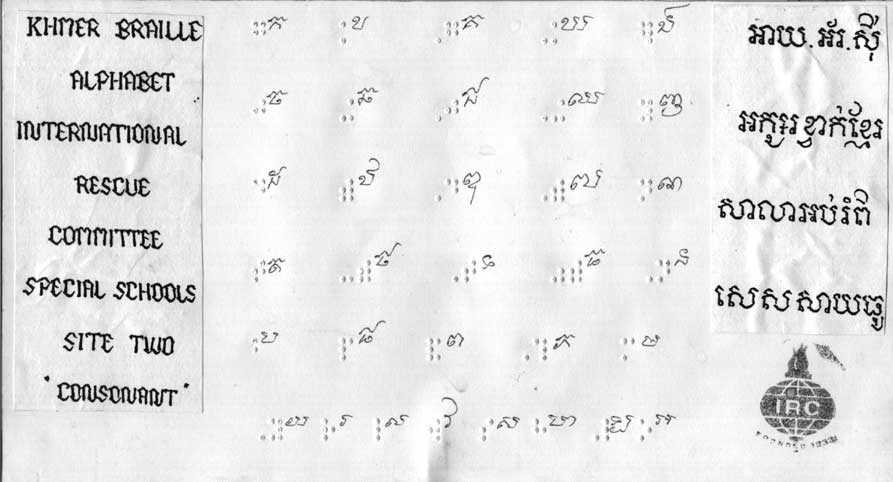 KHMER BRAILLE
ALPHABET
INTERNATIONAL
RESCUE
COMMITTEE
SPECIAL SCHOOLS
SITE TWO
"CONSONANT"
ក ខ គ ឃ ង
ច ឆ ជ ឈ ញ
ដ ឋ ឌ ឍ ណ
ត ថ ទ ធ ន
ប ផ ព ភ ម
យ រ ល វ ស ហ ឡ អ
អាយ.អ័រ.ស៊ី
អក្សរខ្វាក់ខ្មែរ
សាលាអប់រំពិ
សេសសាយធូ
IRC